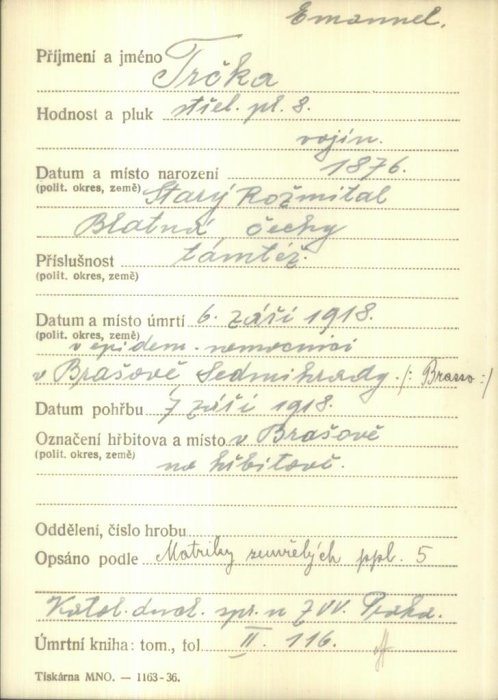 Emanuel.
Příjmení a jméno Trčka
Hodnost a pluk střel. pl. 8.
vojín.
Datum a místo narození 1876.
(polit. okres, země) Starý Rožmitál
Blatná Čechy
Příslušnost tamtéž.
(polit. okres, země)
Datum a místo úmrtí 6. září 1918.
(polit. okres, země)
v epidem. nemocnici
v Brašově Sedmihrady. /: Brasso :/
Datum pohřbu 7 září 1918.
Označení hřbitova a místo v Brašově
(polit. okres, země) na hřbitově.
Oddělení, číslo hrobu
Opsáno podle Matriky zemřelých ppl. 5
Katol. duch. spr. u ZVV. Praha.
Úmrtní kniha: tom., fol II. 116.
Tiskárna MNO. — 1163-36.